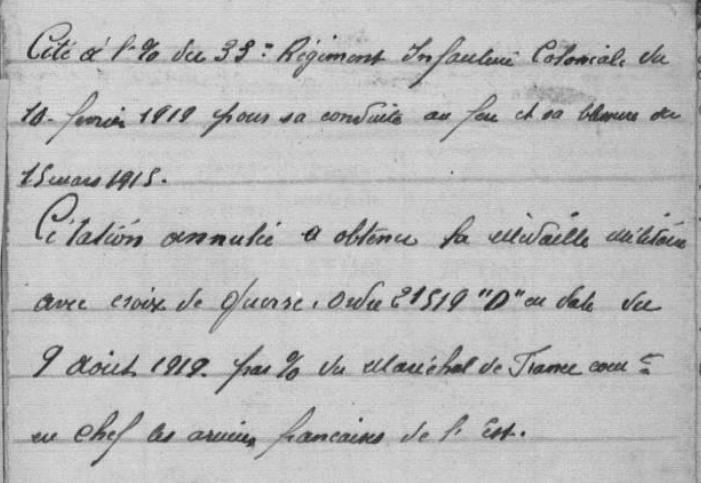 Cité à l'% du 33e Régiment Infanterie Coloniale du
10 février 1919 pour sa conduite au feu et sa blessure du
15 mars 1915.
Citation annulée a obtenu la Médaille Militaire
avec croix de Guerre. Ordre 21519 "D" en date du
9 Août 1919. par % du Maréchal de France com.t
en chef les armées françaises de l'Est.